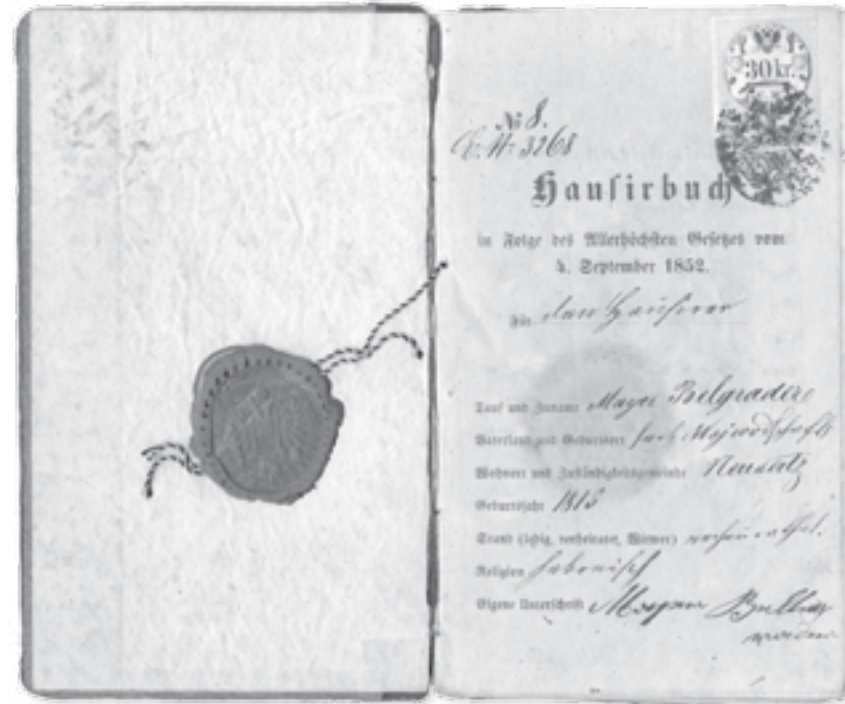 30 kr.
No 8.
E. N: 3268
Hausirbuch
in Folge des Allerhöchsten Gesetzes vom
4. September 1852.
Für den Hausirer
Tauf und Zuname Mayer Belgrader
Vaterland und Geburtsort serb. Wojwodschaft
Wohnort und Zuständigkeitsgemeinde Neusatz
Geburtsjahr 1815
Stand (ledig, verheiratet, Witwer) verheirathet.
Religion hebreisch
Eigene Unterschrift